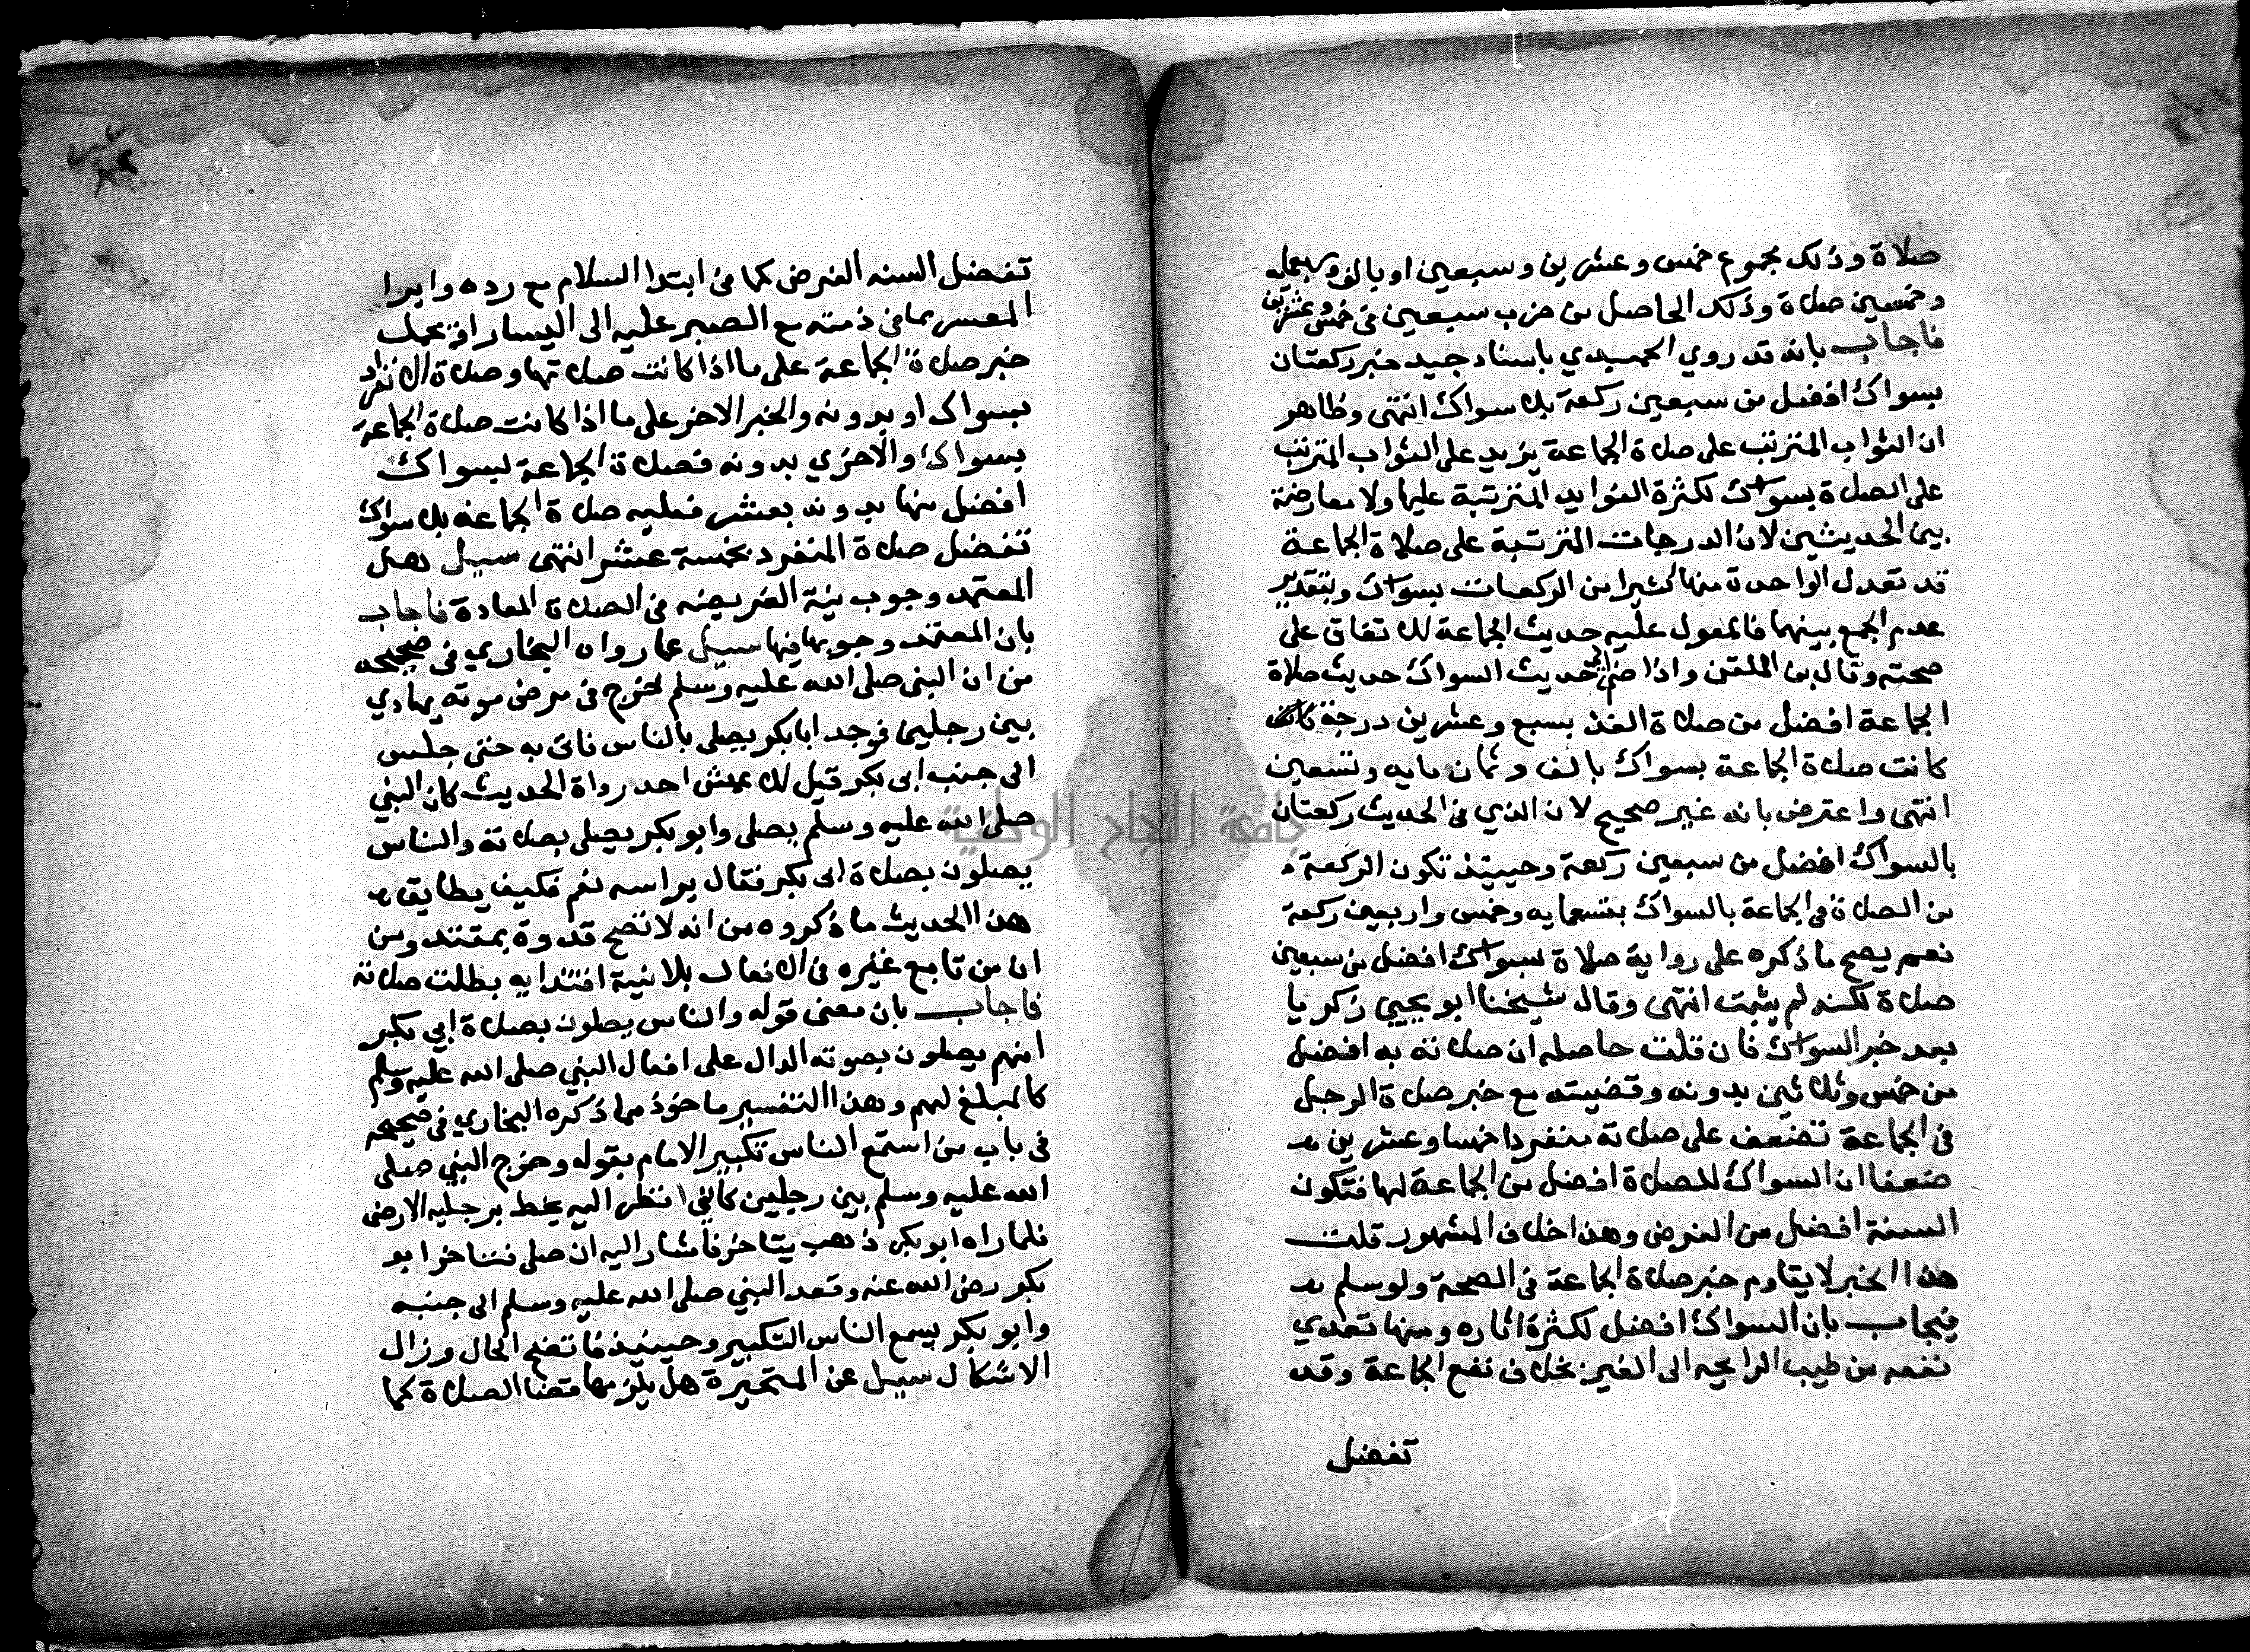 صلاة وذلك مجموع خمس وعشرين وسبعين او بالف وسبعمايه
وخمسين صلاة وذلك الحاصل من ضرب سبعين فى خمس وعشرين
فاجاب بانه قد روي الحميدي باسناد جيد خبر ركعتان
بسواك افضل من سبعين ركعة بلا سواك انتهى وظاهر
ان الثواب المترتب على صلاة الجماعة يزيد على الثواب المترتب
على الصلاة بسواك لكثرة الفوايد المترتبة عليها ولا معارضة
بين الحديثين لان الدرجات المترتبة على صلاة الجماعة
قد تعدل الواحدة منها كثيرا من الركعات بسواك وبتقدير
عدم الجمع بينهما فالمعول عليه حديث الجماعة للاتفاق على
صحته وقال بن الملقن واذا ضم الى حديث السواك حديث صلاة
الجماعة افضل من صلاة الفذ بسبع وعشرين درجة
كانت صلاة الجماعة بسواك بالف وثمان مايه وتسعين
انتهى واعترض بانه غير صحيح لان الذي فى الحديث ركعتان
بالسواك افضل من سبعين ركعة وحينيذ تكون الركعة
من الصلاة فى الجماعة بالسواك بتسعمايه وخمس واربعين ركعة
نعم يصح ما ذكره على رواية صلاة بسواك افضل من سبعين
صلاة لكنه لم يثبت انتهى وقال شيخنا ابو يحيى زكريا
بعد خبر السواك فان قلت حاصله ان صلاته به افضل
من خمس وثلاثين بدونه وقضيته مع خبر صلاة الرجل
فى الجماعة تضعف على صلاته منفردا خمسا وعشرين
ضعفا ان السواك للصلاة افضل من الجماعة لها فتكون
السنة افضل من الفرض وهذا خلاف المشهور قلت
هذا الخبر لا يقاوم خبر صلاة الجماعة فى الصحة ولو سلم
فيجاب بان السواك افضل لكثرة اثاره ومنها تعدي
نفعه من طيب الرايحه الى الغير بخلاف نفع الجماعة وقد
تفضل
تفضل السنه الفرض كما فى ابتدا السلام مع رده وابرا
المعسر مما فى ذمته مع الصبر عليه الى اليسار او يحمل
خبر صلاة الجماعة على ما اذا كانت صلاتها وصلاة الانفراد
بسواك او بدونه والخبر الاخر على ما اذا كانت صلاة الجماعة
بسواك والاخرى بدونه فصلاة الجماعة بسواك
افضل منها بدونه بعشر فعليه صلاة الجماعة بلا سواك
تفضل صلاة المنفرد بخمسة عشر انتهى سيل هل
المعتمد وجوب نية الفريضه فى الصلاة المعادة فاجاب
بان المعتمد وجوبها فيها سيل عما رواه البخاري فى صحيحه
من ان النبي صلى الله عليه وسلم خرج فى مرض موته يهادي
بين رجلين فوجد ابا بكر يصلى بالناس فاتى به حتى جلس
الى جنب ابى بكر قيل للاعمش احد رواة الحديث كان النبي
صلى الله عليه وسلم يصلى وابو بكر يصلى بصلاته والناس
يصلون بصلاة ابى بكر فقال براسه نعم فكيف يطابق
هذا الحديث ما ذكروه من انه لا تصح قدوة بمقتد ومن
ان من تابع غيره فى الافعال بلا نية اقتدا به بطلت صلاته
فاجاب بان معنى قوله والناس يصلون بصلاة ابي بكر
انهم يصلون بصوته الدال على افعال النبي صلى الله عليه وسلم
كالمبلغ لهم وهذا التفسير ماخوذ مما ذكره البخاري فى صحيحه
فى باب من استمع الناس تكبير الامام بقوله وخرج النبي صلى
الله عليه وسلم بين رجلين كاني انظر اليه يخط برجليه الارض
فلما راه ابو بكر ذهب يتاخر فاشار اليه ان صلى فتاخر ابو
بكر رضى الله عنه وقعد النبي صلى الله عليه وسلم الى جنبه
وابو بكر يسمع الناس التكبير وحينيذ فاتضح الحال وزال
الاشكال سيل عن المتحيرة هل يلزمها قضا الصلاة كما
جامعة النجاح الوطنية